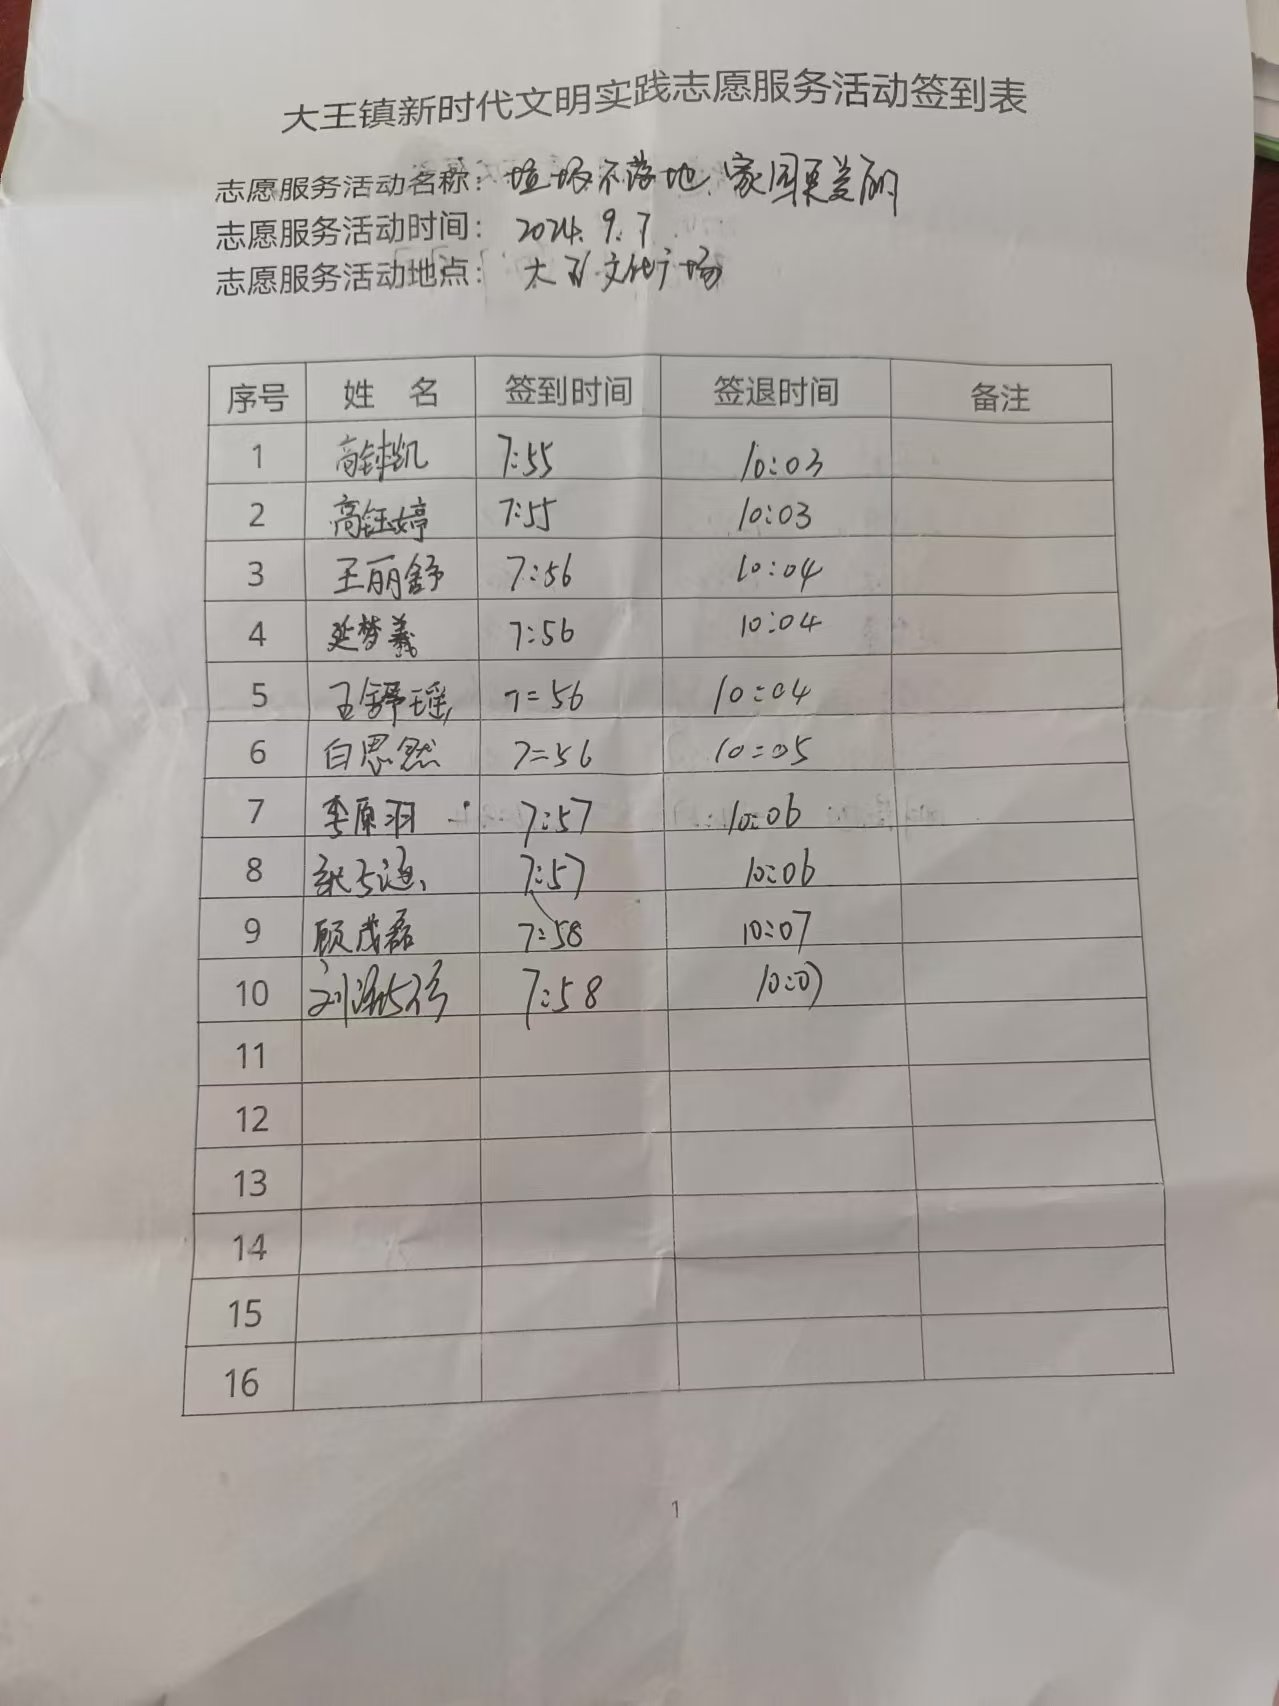 大王镇新时代文明实践志愿服务活动签到表
志愿服务活动名称：垃圾不落地、家园更美丽
志愿服务活动时间：2024.9.7
志愿服务活动地点：大王文化广场
序号 姓 名 签到时间 签退时间 备注
1 高钟凯 7:55 10:03
2 高钰婷 7:55 10:03
3 王丽舒 7:56 10:04
4 延梦羲 7:56 10:04
5 王舒瑶 7:56 10:04
6 白思然 7:56 10:05
7 李原羽 7:57 10:06
8 7:57 10:06
9 顾茂磊 7:58 10:07
10 7:58 10:07
11
12
13
14
15
16
1